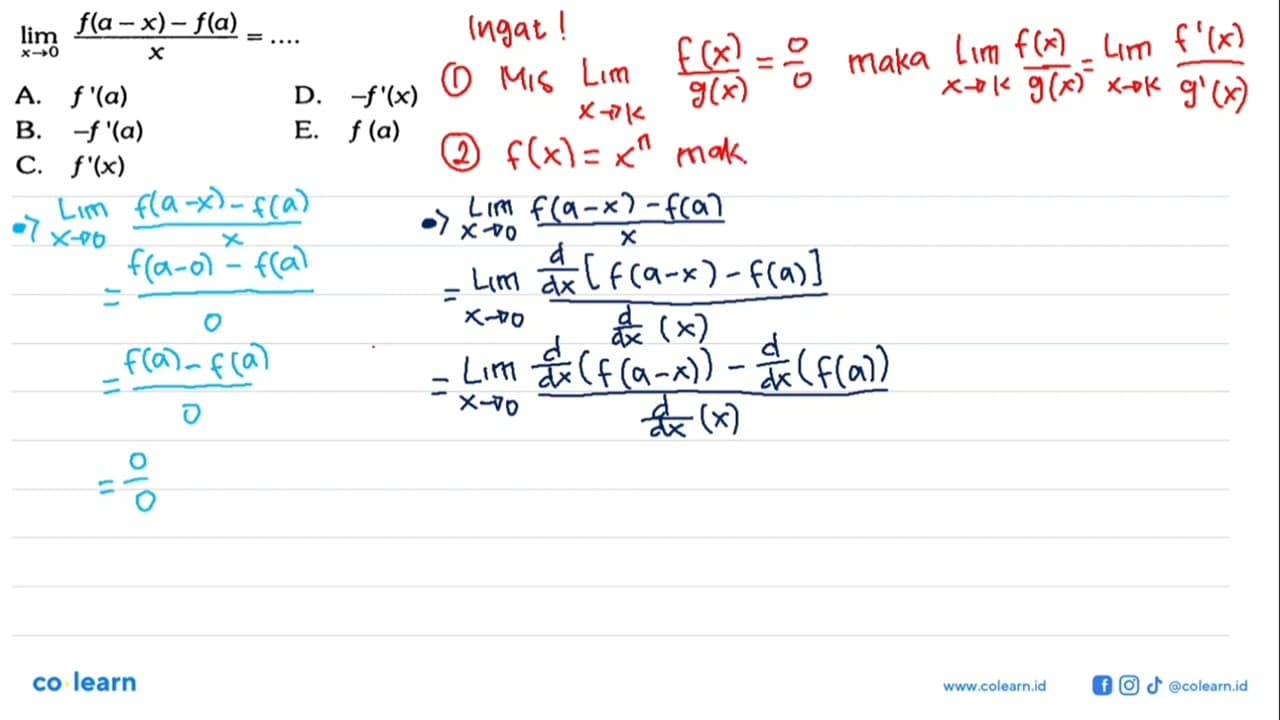 lim x→0 f(a – x) – f(a) / x = ....
A. f '(a)
B. –f '(a)
C. f '(x)
D. –f '(x)
E. f (a)
Ingat !
① Mis Lim x→k f(x)/g(x) = 0/0 maka Lim x→k f(x)/g(x) = Lim x→k f'(x)/g'(x)
② f(x) = xⁿ mak
•⇒ Lim x→0 f(a-x) - f(a) / x
= f(a-0) - f(a) / 0
= f(a) - f(a) / 0
= 0/0
•⇒ Lim x→0 f(a-x) - f(a) / x
= Lim x→0 d/dx [f(a-x) - f(a)] / d/dx (x)
= Lim x→0 d/dx (f(a-x)) - d/dx (f(a)) / d/dx (x)
co learn
www.colearn.id
@colearn.id